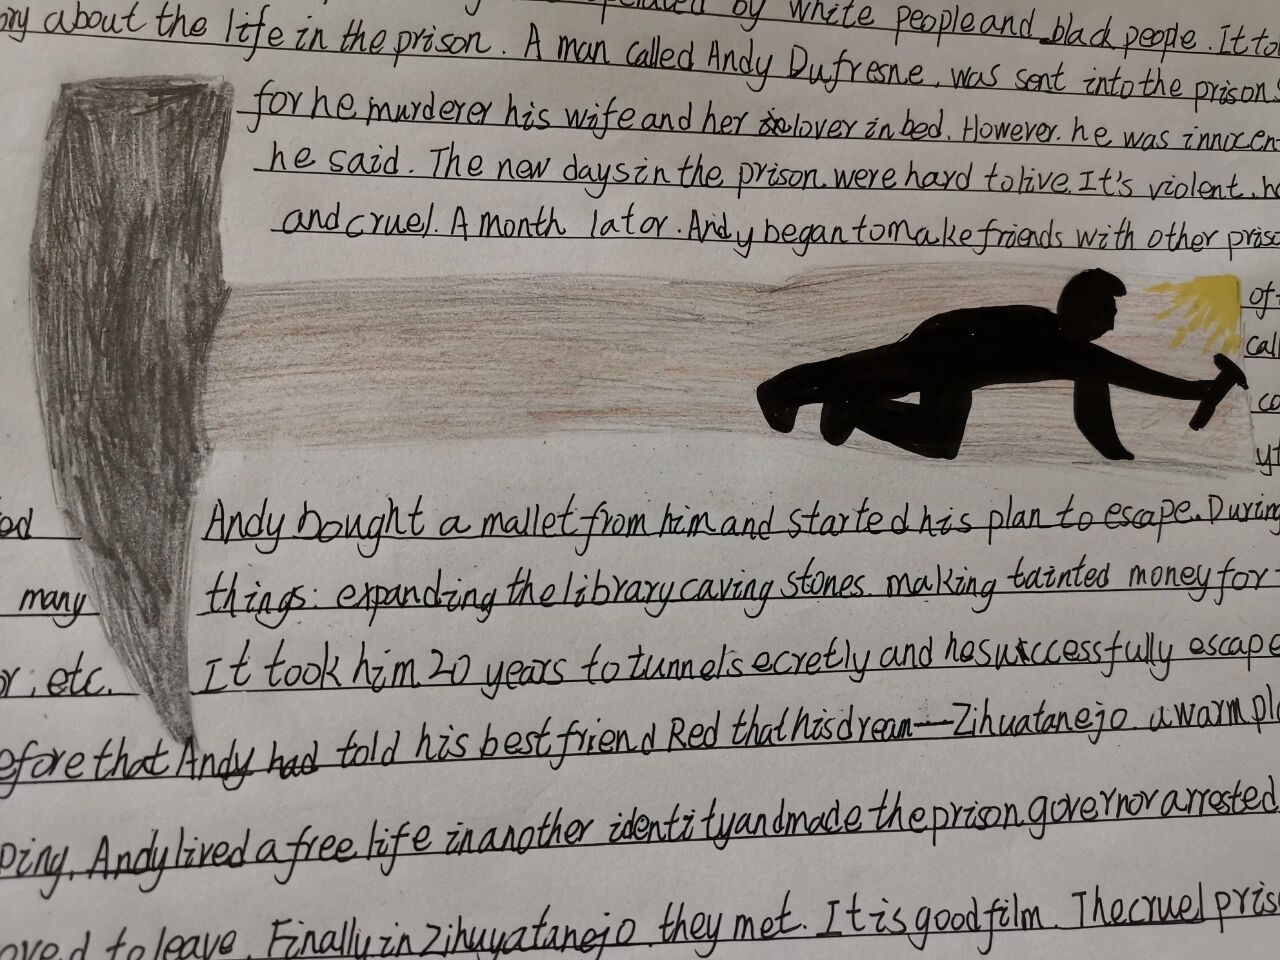 by white people and black people. It to
ory about the life in the prison. A man called Andy Dufresne, was sent into the prison
for he murderer his wife and her lover in bed. However. he was innocen
he said. The new days in the prison. were hard to live. It's violent. h
and cruel. A month lator. Andy began to make friends with other priso
of
call
co
yt
od Andy bought a mallet from him and started his plan to escape. During
many things: expanding the library caving stones. making tainted money for
or, etc. It took him 20 years to tunnel secretly and he successfully escape
efore that Andy had told his best friend Red that his dream—Zihuatanejo. a warm pla
ping, Andy lived a free life in another identity and made the prison governor arrested.
oved to leave. Finally in Zihuyatanejo. they met. It is good film. The cruel pris